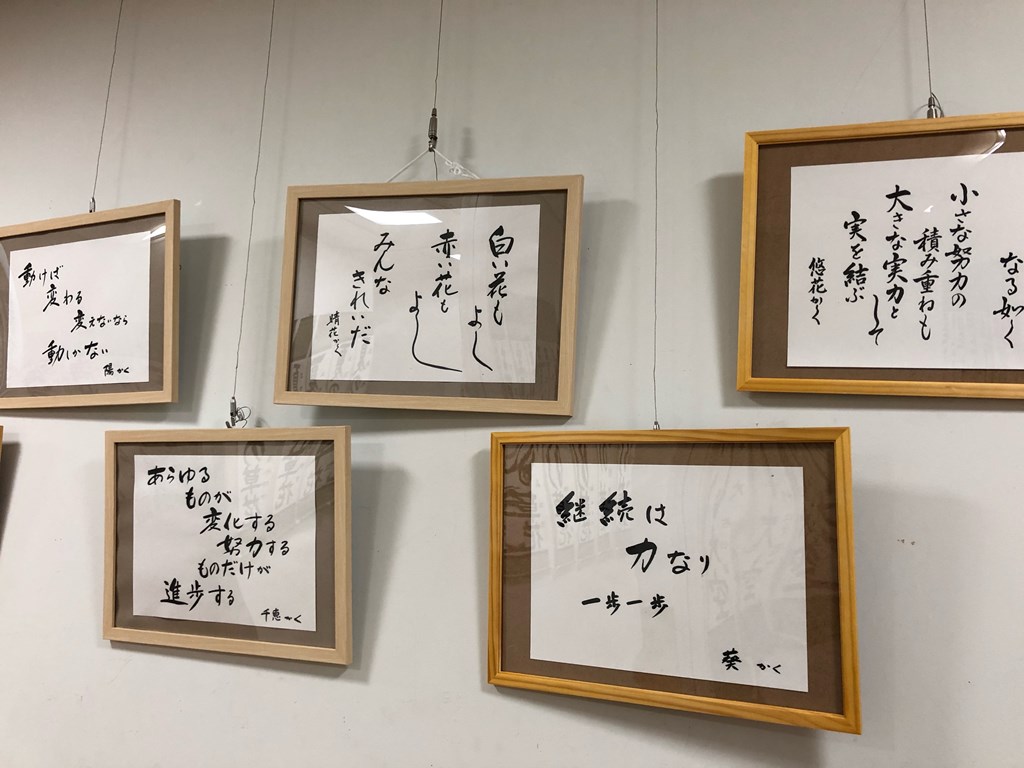 動けば
変わる
変えないなら
動しかない
陽かく
白い花も
よし
赤い花も
よし
みんな
きれいだ
晴花かく
なる如く
小さな努力の
積み重ねも
大きな実力と
して
実を結ぶ
悠花かく
あらゆる
ものが
変化する
努力する
ものだけが
進歩する
千恵かく
継続は
力なり
一歩一歩
葵かく